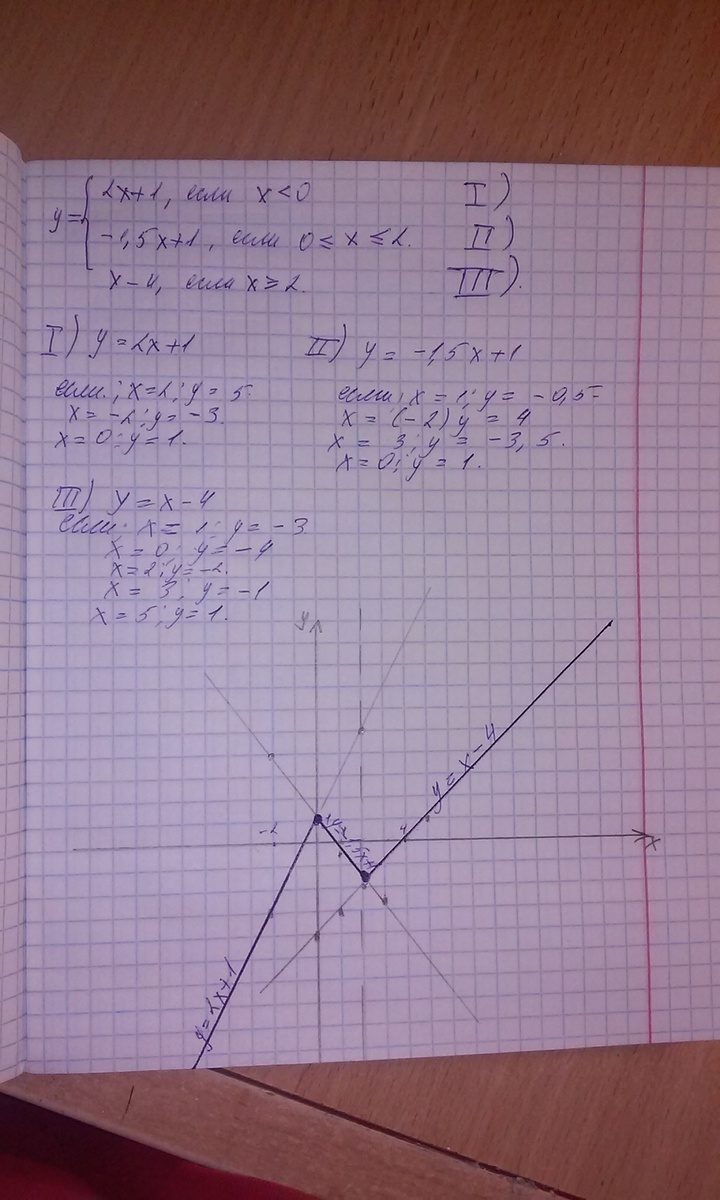 y = { 2x+1, если x < 0 I)
-1,5x+1, если 0 ≤ x ≤ 2. II)
x-4, если x ≥ 2. III).
I) y = 2x+1
если: x=2; y = 5
x = -2; y = -3.
x = 0; y = 1.
II) y = -1,5x+1
если: x = 1; y = -0,5
x = (-2) y = 4
x = 3; y = -3,5.
x = 0; y = 1.
III) y = x-4
если: x = 1; y = -3
x = 0; y = -4
x = 2; y = -2.
x = 3; y = -1
x = 5; y = 1.
y
y = x-4
-2
4
x
y = 2x+1